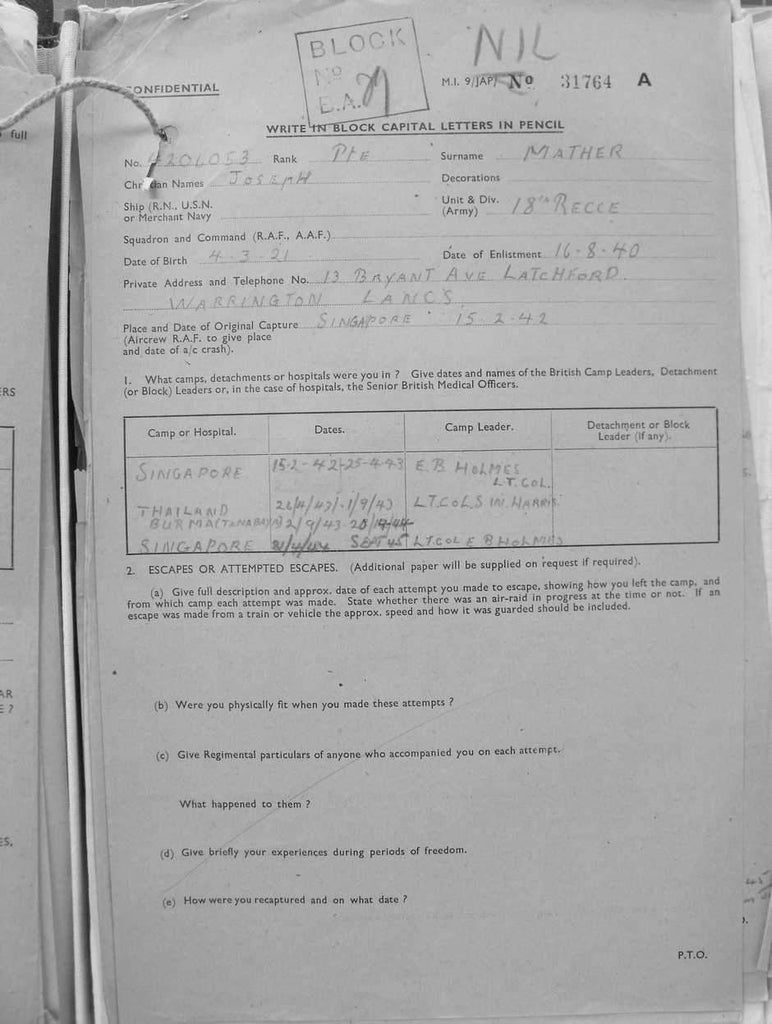 BLOCK
NIL
Nº
CONFIDENTIAL
M.I. 9/JAP/ Nº 31764 A
B.A.
WRITE IN BLOCK CAPITAL LETTERS IN PENCIL
No. 4206053 Rank Pte Surname MATHER
Christian Names JOSEPH Decorations
Ship (R.N., U.S.N. Unit & Div. 18th RECCE
or Merchant Navy (Army)
Squadron and Command (R.A.F., A.A.F.)
Date of Birth 4.3.21 Date of Enlistment 16-8-40
Private Address and Telephone No. 13 BRYANT AVE LATCHFORD
WARRINGTON LANCS
Place and Date of Original Capture SINGAPORE 15.2.42
(Aircrew R.A.F. to give place
and date of a/c crash).
1. What camps, detachments or hospitals were you in ? Give dates and names of the British Camp Leaders, Detachment
(or Block) Leaders or, in the case of hospitals, the Senior British Medical Officers.
Camp or Hospital. Dates. Camp Leader. Detachment or Block
Leader (if any).
SINGAPORE 15-2-42-25-4-43 E.B HOLMES
LT. COL.
THAILAND 26/4/43/-1/9/43 LT.COL.S HARRIS
BURMA 2/9/43
SINGAPORE SEPT 45 LT.COL E B HOLMES
2. ESCAPES OR ATTEMPTED ESCAPES. (Additional paper will be supplied on request if required).
(a) Give full description and approx. date of each attempt you made to escape, showing how you left the camp, and
from which camp each attempt was made. State whether there was an air-raid in progress at the time or not. If an
escape was made from a train or vehicle the approx. speed and how it was guarded should be included.
(b) Were you physically fit when you made these attempts ?
(c) Give Regimental particulars of anyone who accompanied you on each attempt.
What happened to them ?
(d) Give briefly your experiences during periods of freedom.
(e) How were you recaptured and on what date ?
P.T.O.